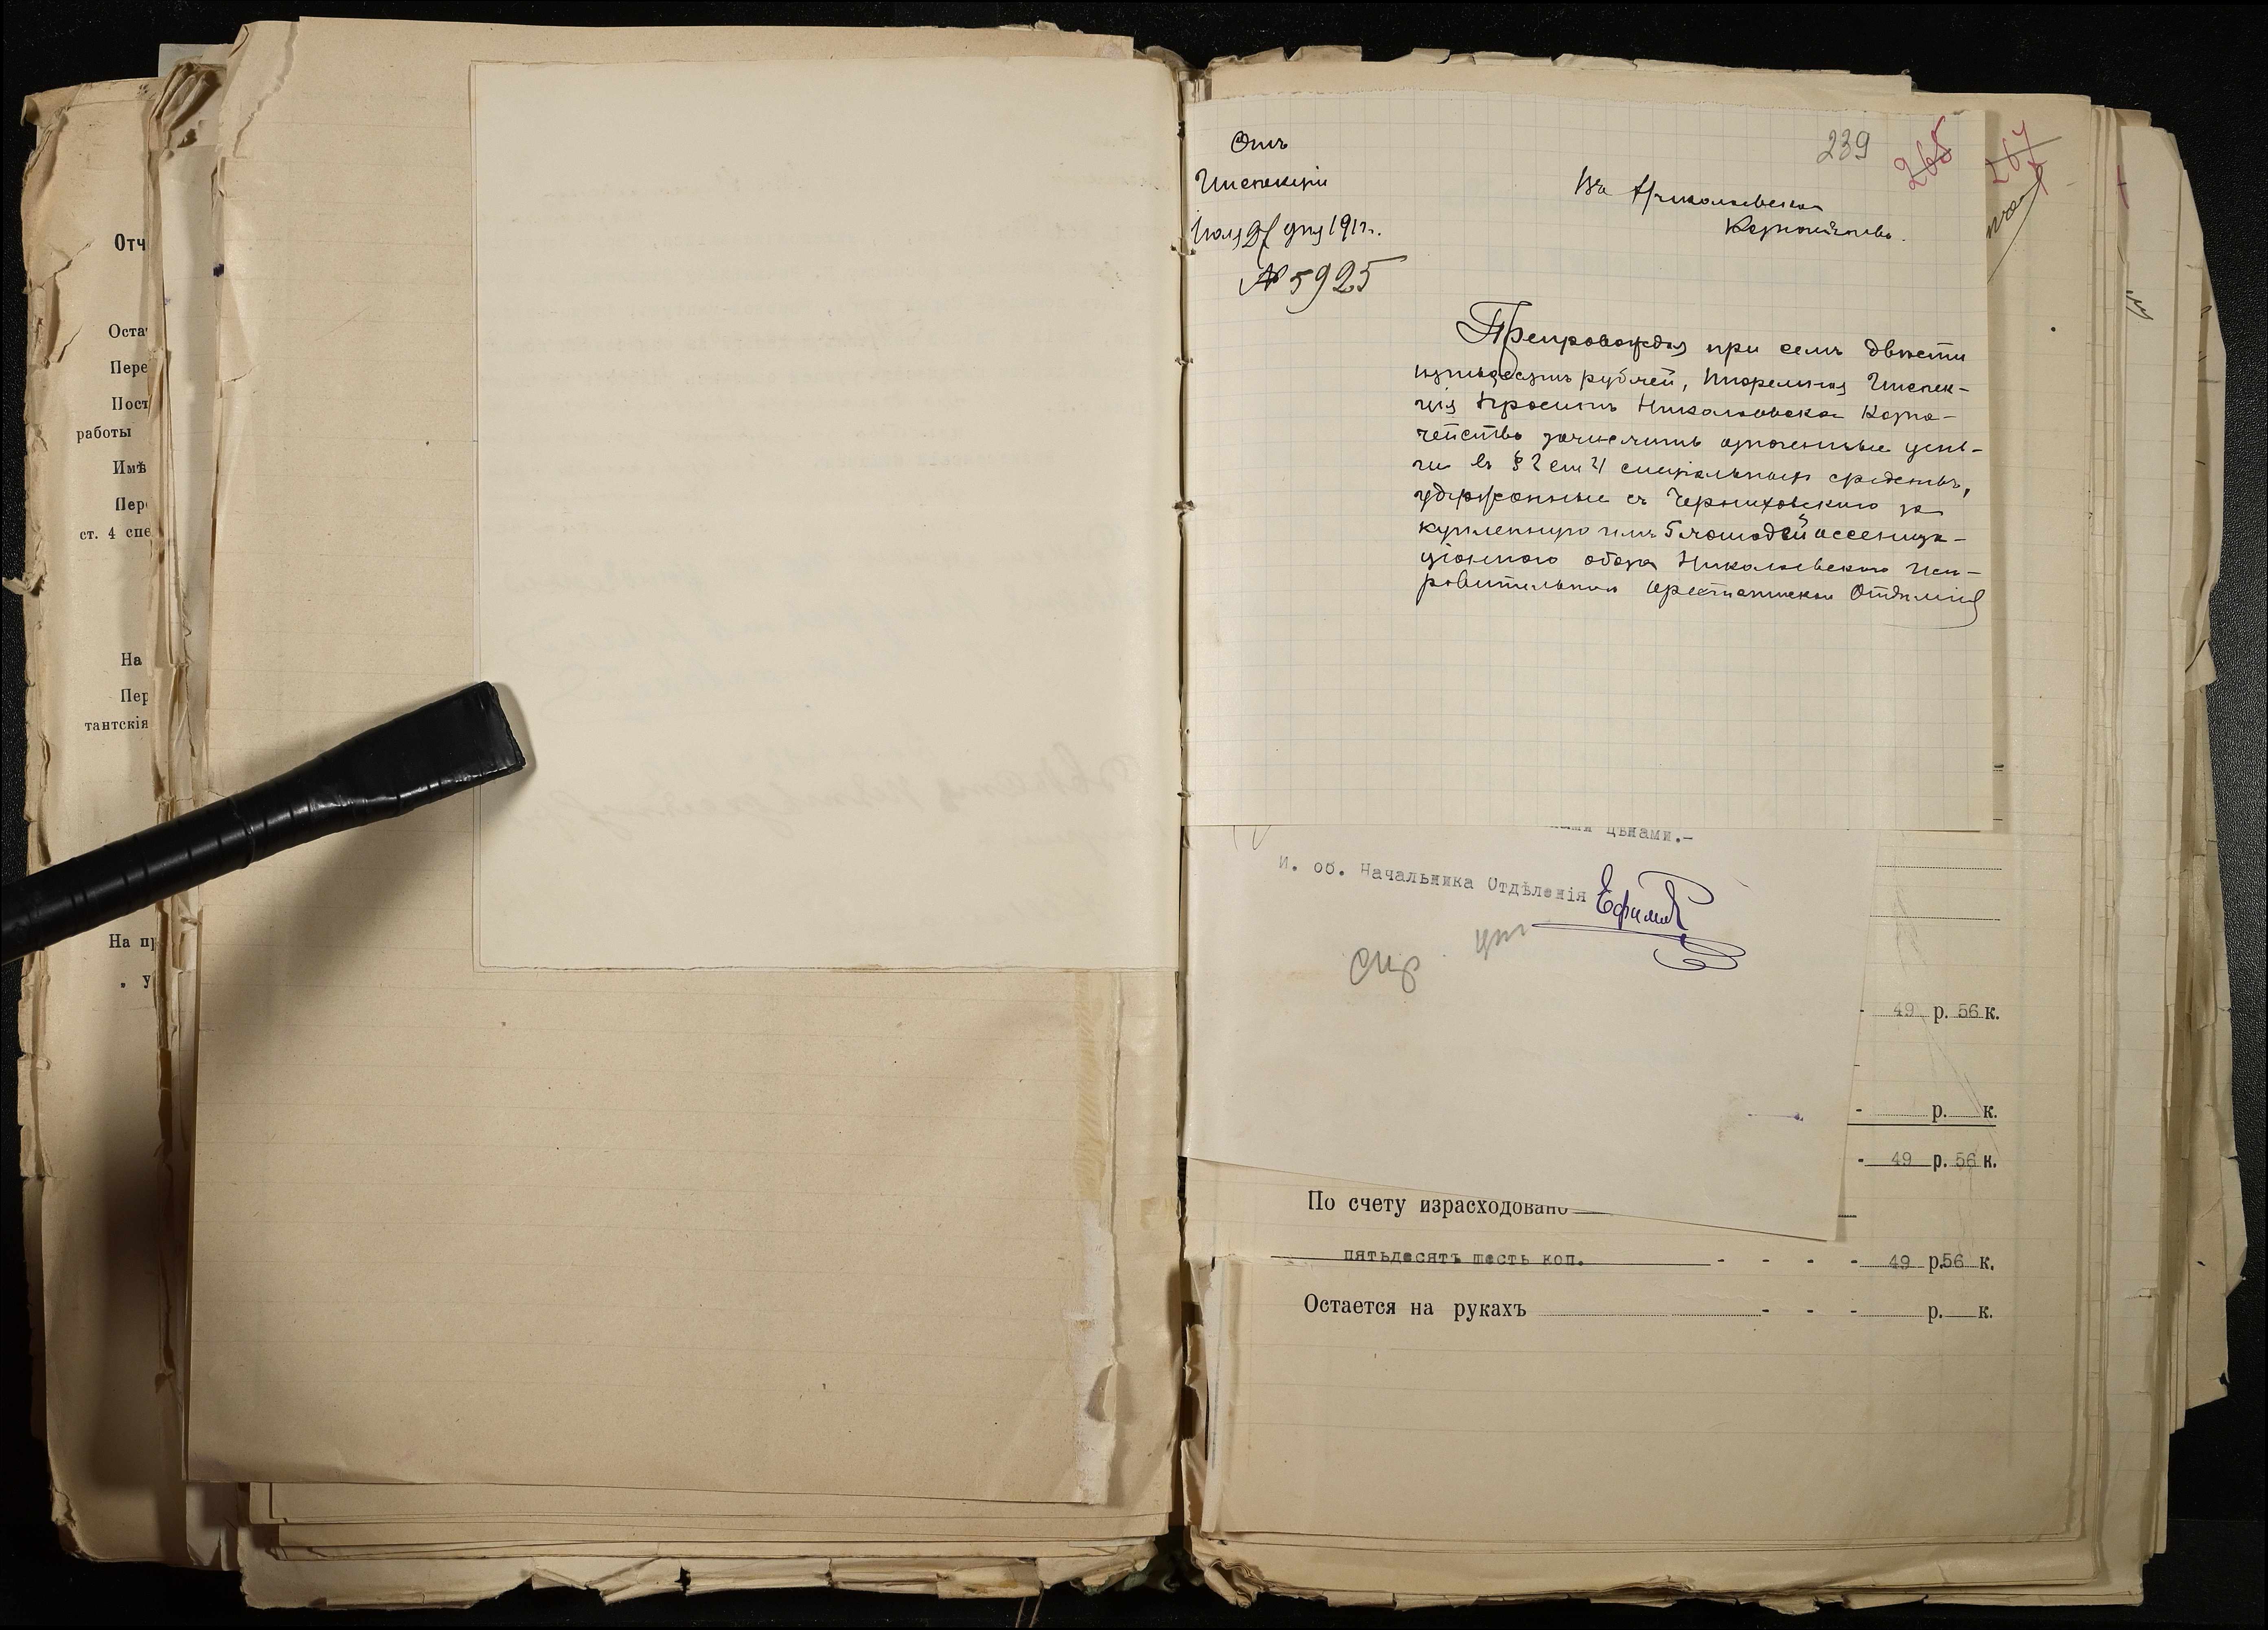 Отч
Оста
Пере
Пост
работы
Имѣ
Пер
ст. 4 спе
На
Пер
тантскія
На пр
У
239
265
267
Отъ
Инспекціи
Іюля 21 дня 1911 г.
№ 5925
Въ Николаевское
Казначейство.
Препровождая при семъ двѣсти
пятьдесятъ рублей, Тюремная Инспек-
ція проситъ Николаевское Казна-
чейство зачислить означенные день-
ги въ § 2 ст 4 спеціальныхъ средствъ,
удержанные съ Черниховскаго за
купленную имъ 5 лошадей ассениза-
ціоннаго обоза Николаевскаго Исп-
равительнаго Арестантскаго Отдѣленія
цѣнами.-
И. об. Начальника Отдѣленія Ефимов
49 р. 56 к.
р. к.
49 р. 56 к.
По счету израсходовано
пятьдесятъ шесть коп. - - - - 49 р. 56 к.
Остается на рукахъ - - - р. к.